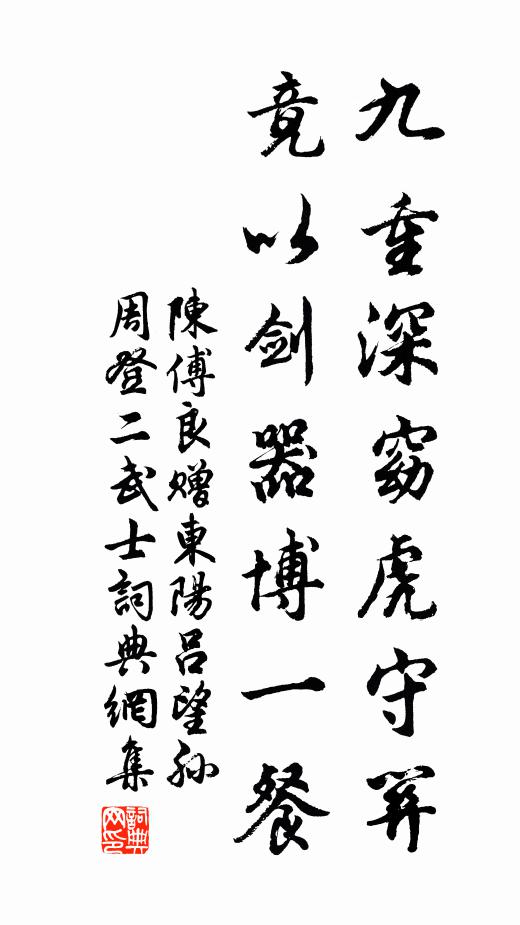 九重深窈虎守關
竟以劍器博一餐
陳傅良贈東陽呂望孫
周登二武士詞典網集
詞典网印